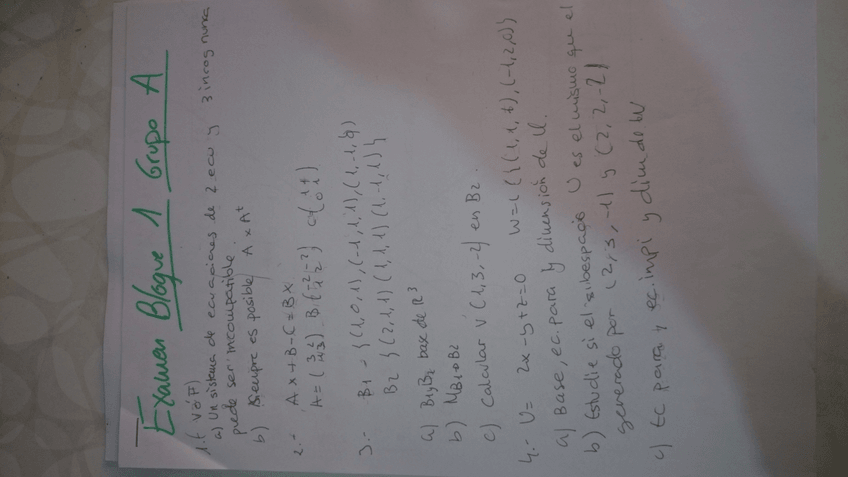 Examen Bloque 1 Grupo A
1.- (V ó F)
a) Un sistema de ecuaciones de 2 ecu y 3 incog nunca
puede ser incompatible.
b) Siempre es posible A x Aᵗ
2.- Ax + B - C = Bx
A = B C
3.- B1 = {(1, 0, 1), (-1, 1, 1), (1, -1,
B2 {(2, 1, 1) (1, 1, 1) (1, -1, 1)}
a) B1 y B2 base de R³
b) MB1→B2
c) Calcular v (1, 3, -2) en B2.
4.- U = 2x - y + z = 0 W = L({(1, 1, 1), (-1, 2, 0)}
a) Base, ec. para y dimensión de U.
b) Estudie si el subespacio U es el mismo que el
generado por (2, 3, -1) y (2, 2, -2)
c) Ec para y ec. impl y dim de W